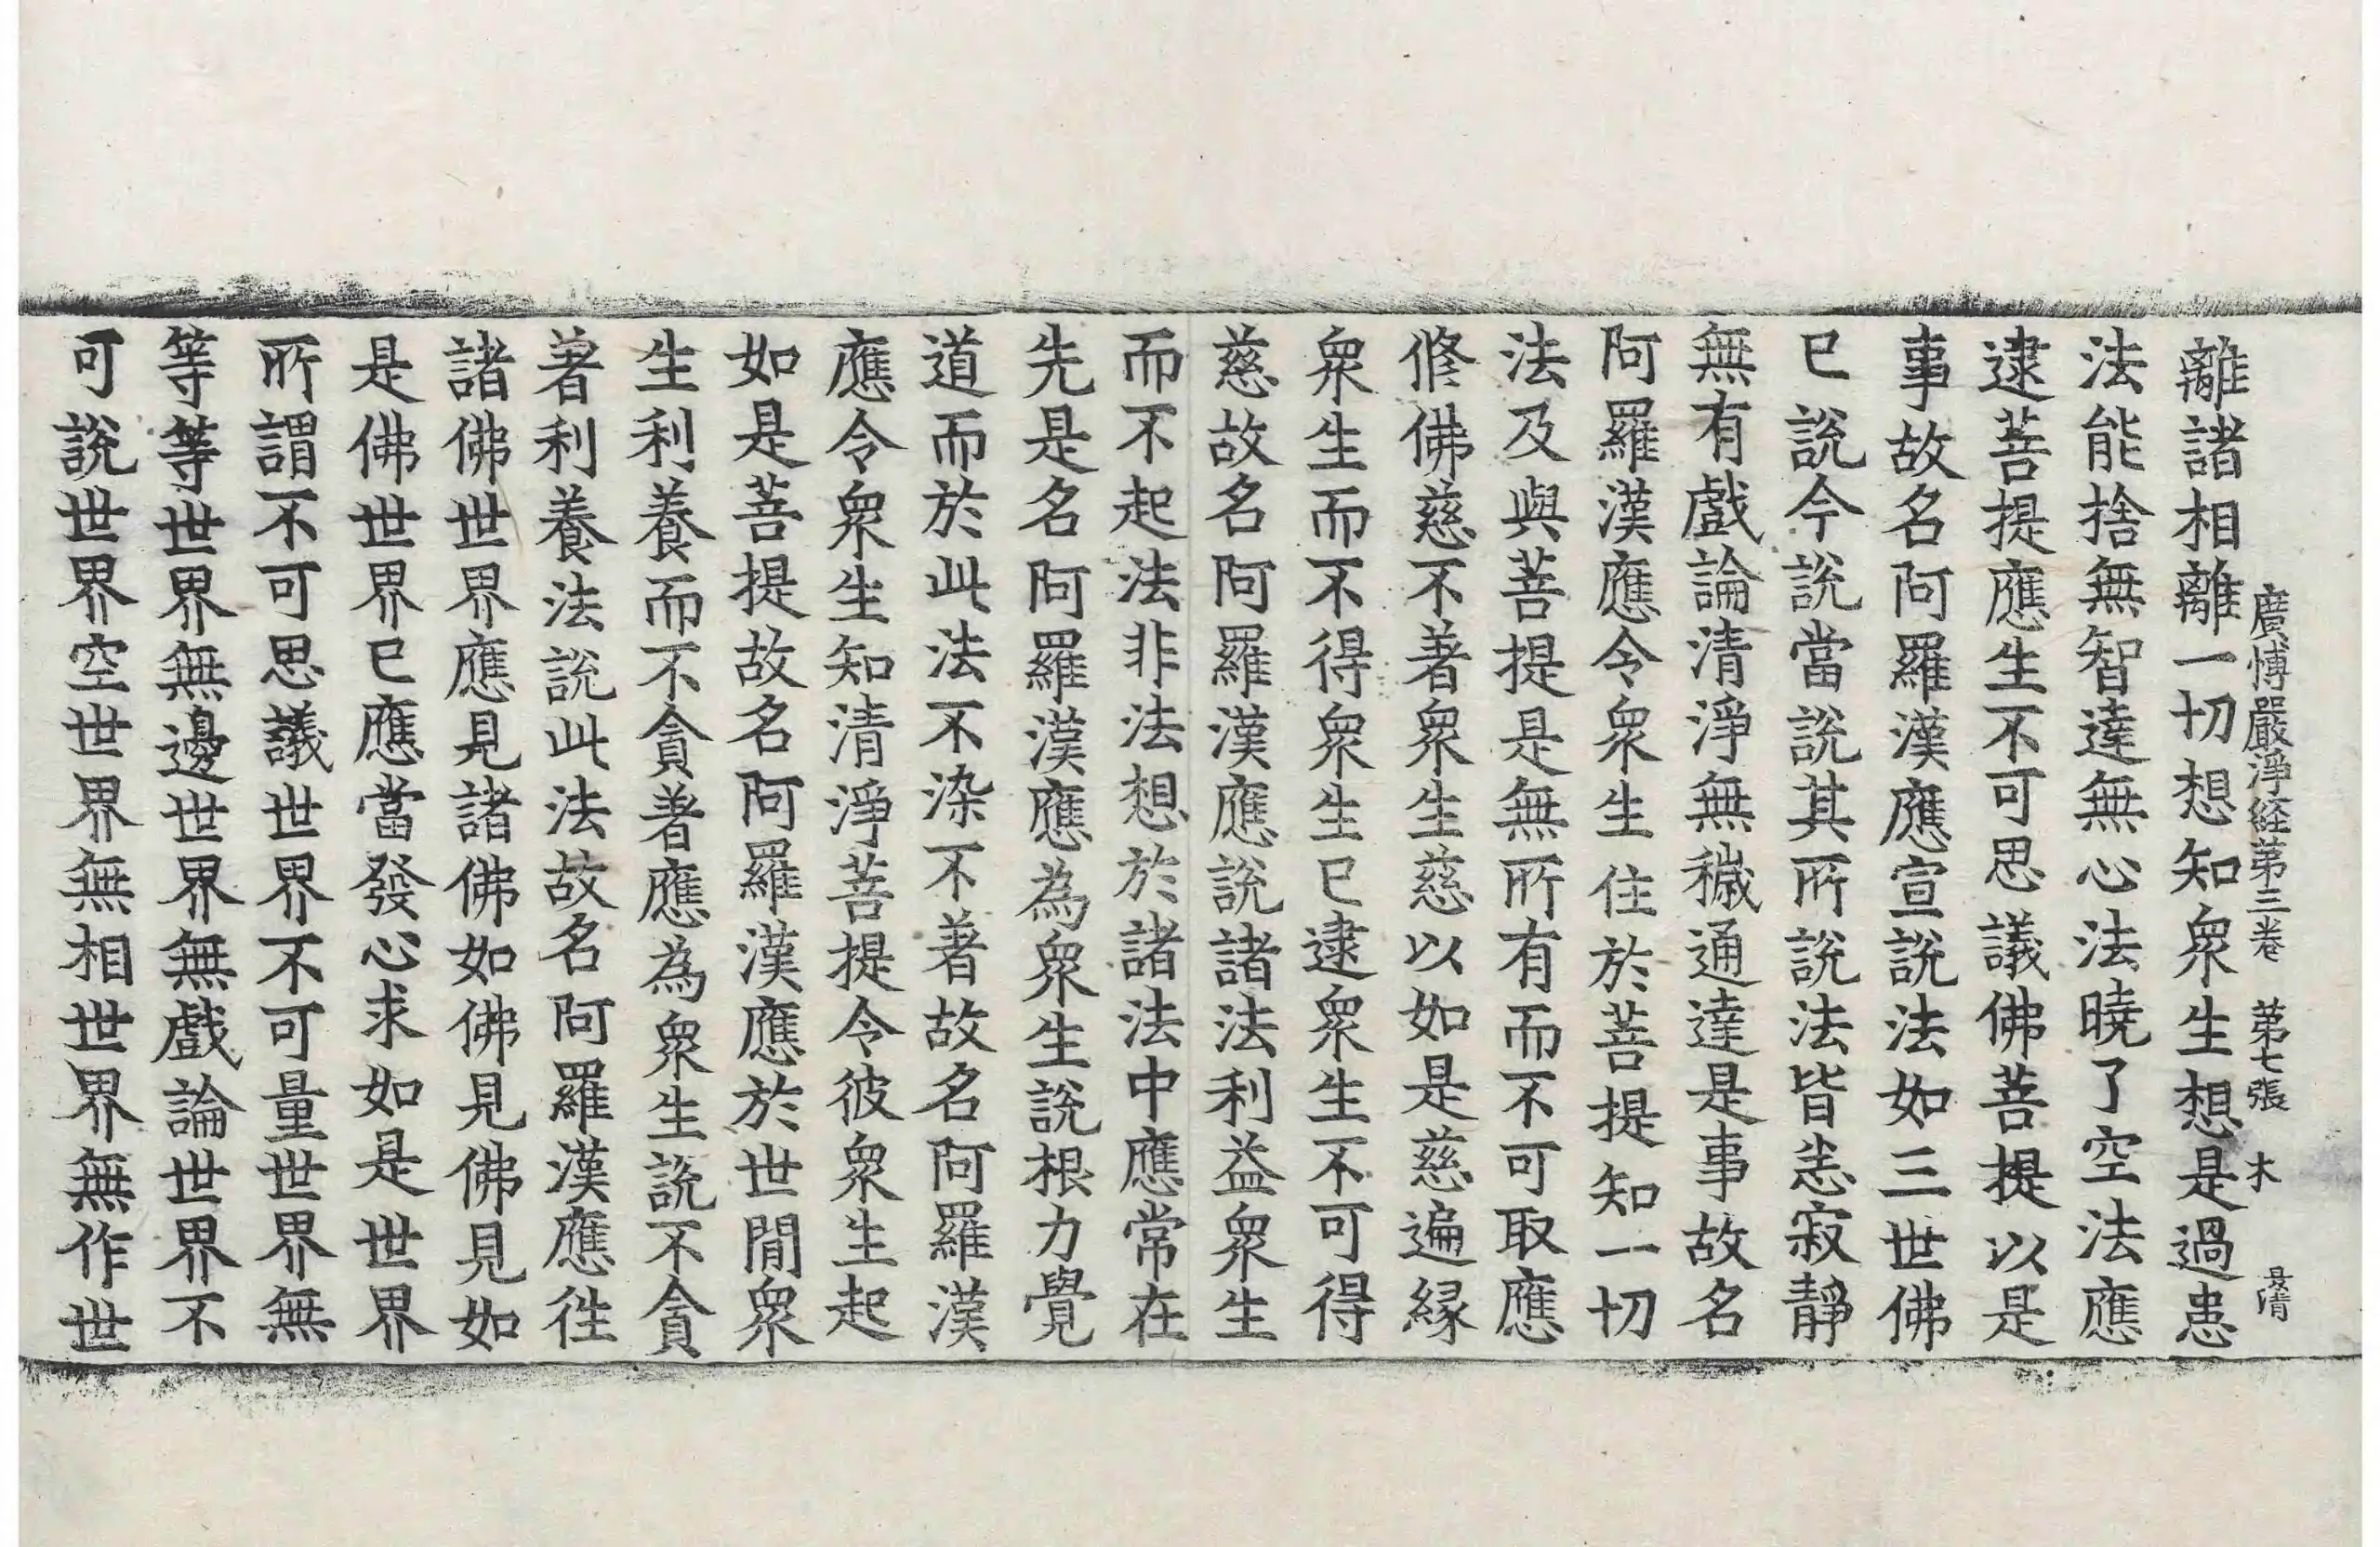 廣愽嚴淨経第三卷　第七張　木
離諸相離一切想知衆生想是過患
法能捨無智達無心法曉了空法應
逮菩提應生不可思議佛菩提以是
事故名阿羅漢應宣說法如三世佛
已說今說當說其所說法皆悉寂靜
無有戲論清淨無穢通達是事故名
阿羅漢應令衆生住於菩提知一切
法及與菩提是無所有而不可取應
修佛慈不著衆生慈以如是慈遍緣
衆生而不得衆生已逮衆生不可得
慈故名阿羅漢應說諸法利益衆生
而不起法非法想於諸法中應常在
先是名阿羅漢應為衆生說根力覺
道而於此法不染不著故名阿羅漢
應令衆生知清淨菩提令彼衆生起
如是菩提故名阿羅漢應於世間衆
生利養而不貪著應為衆生說不貪
著利養法說此法故名阿羅漢應往
諸佛世界應見諸佛如佛見佛見如
是佛世界已應當發心求如是世界
所謂不可思議世界不可量世界無
等等世界無邊世界無戲論世界不
可說世界空世界無相世界無作世